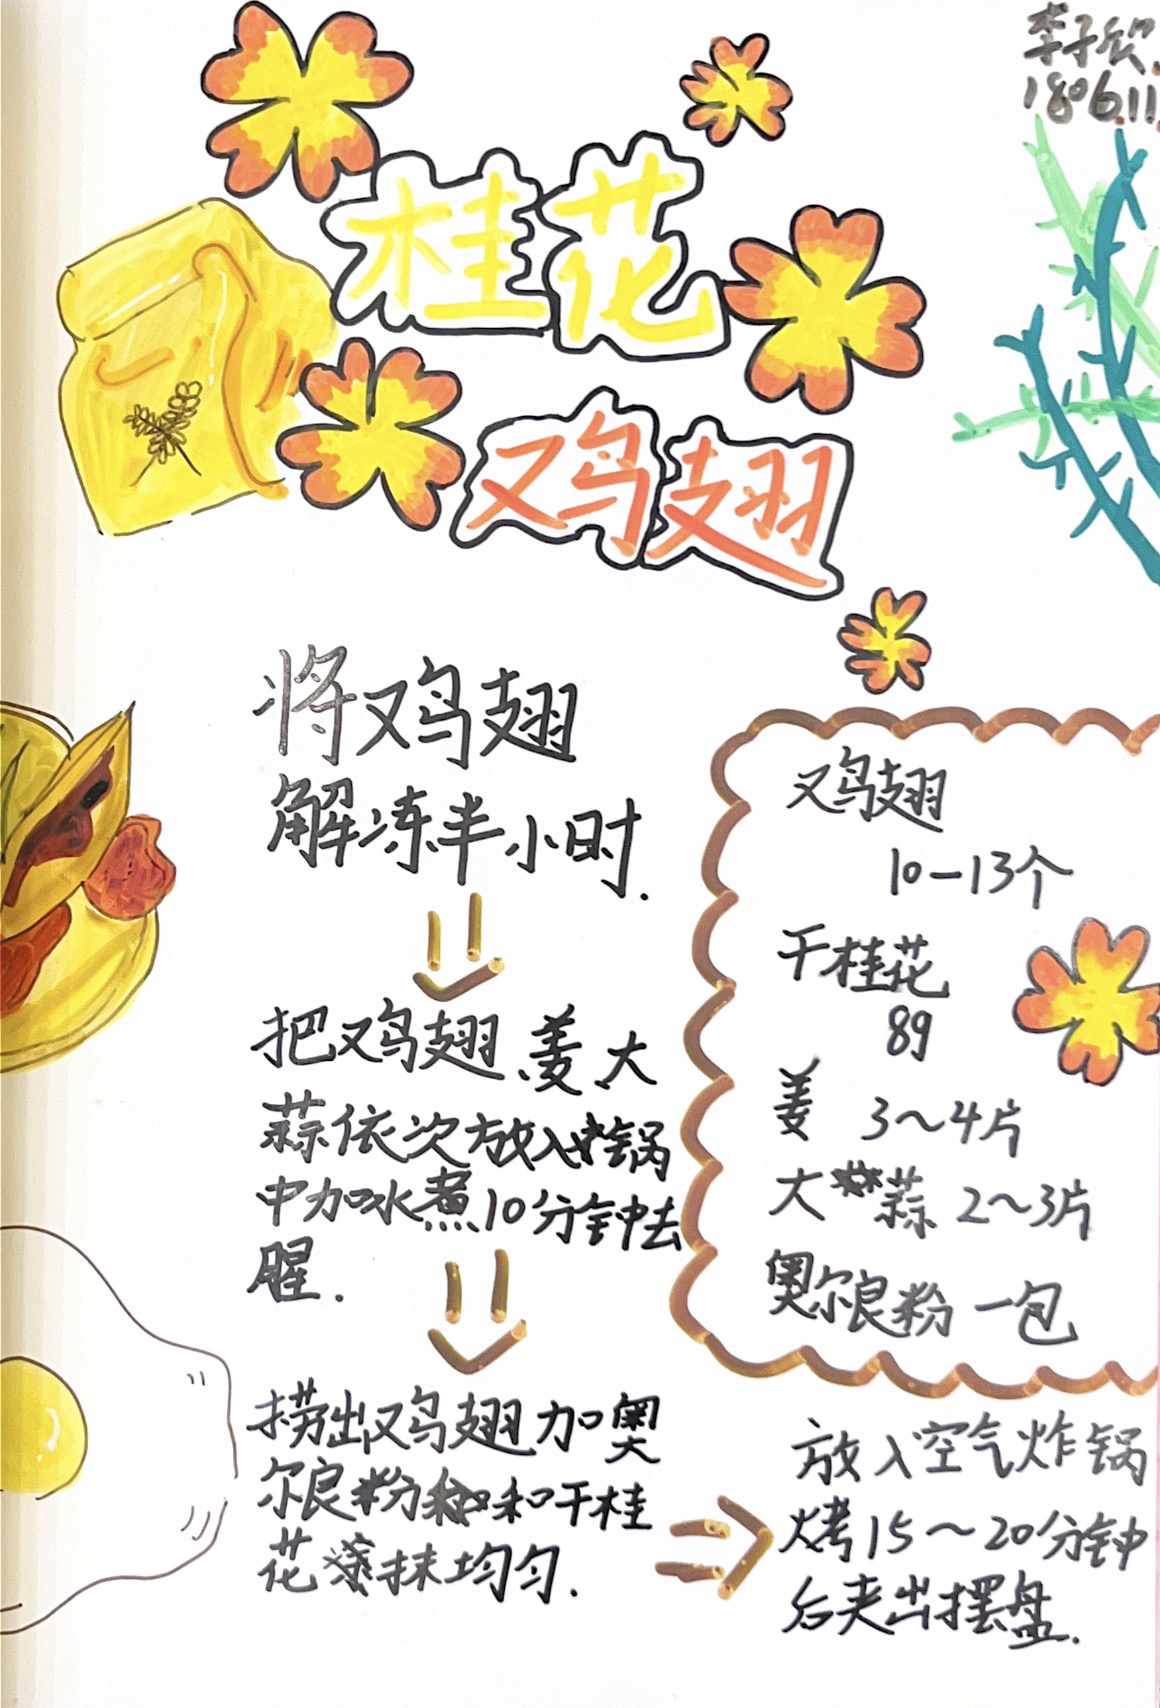 李子欣
1806.11.
桂花
鸡翅
将鸡翅
解冻半小时.
把鸡翅、姜大
蒜依次放入锅
中加水煮10分钟去
腥.
捞出鸡翅加奥
尔良粉和干桂
花抹均匀.
鸡翅
10-13个
干桂花
89
姜 3~4片
大蒜 2~3片
奥尔良粉 一包
放入空气炸锅
烤15~20分钟
后夹出摆盘.